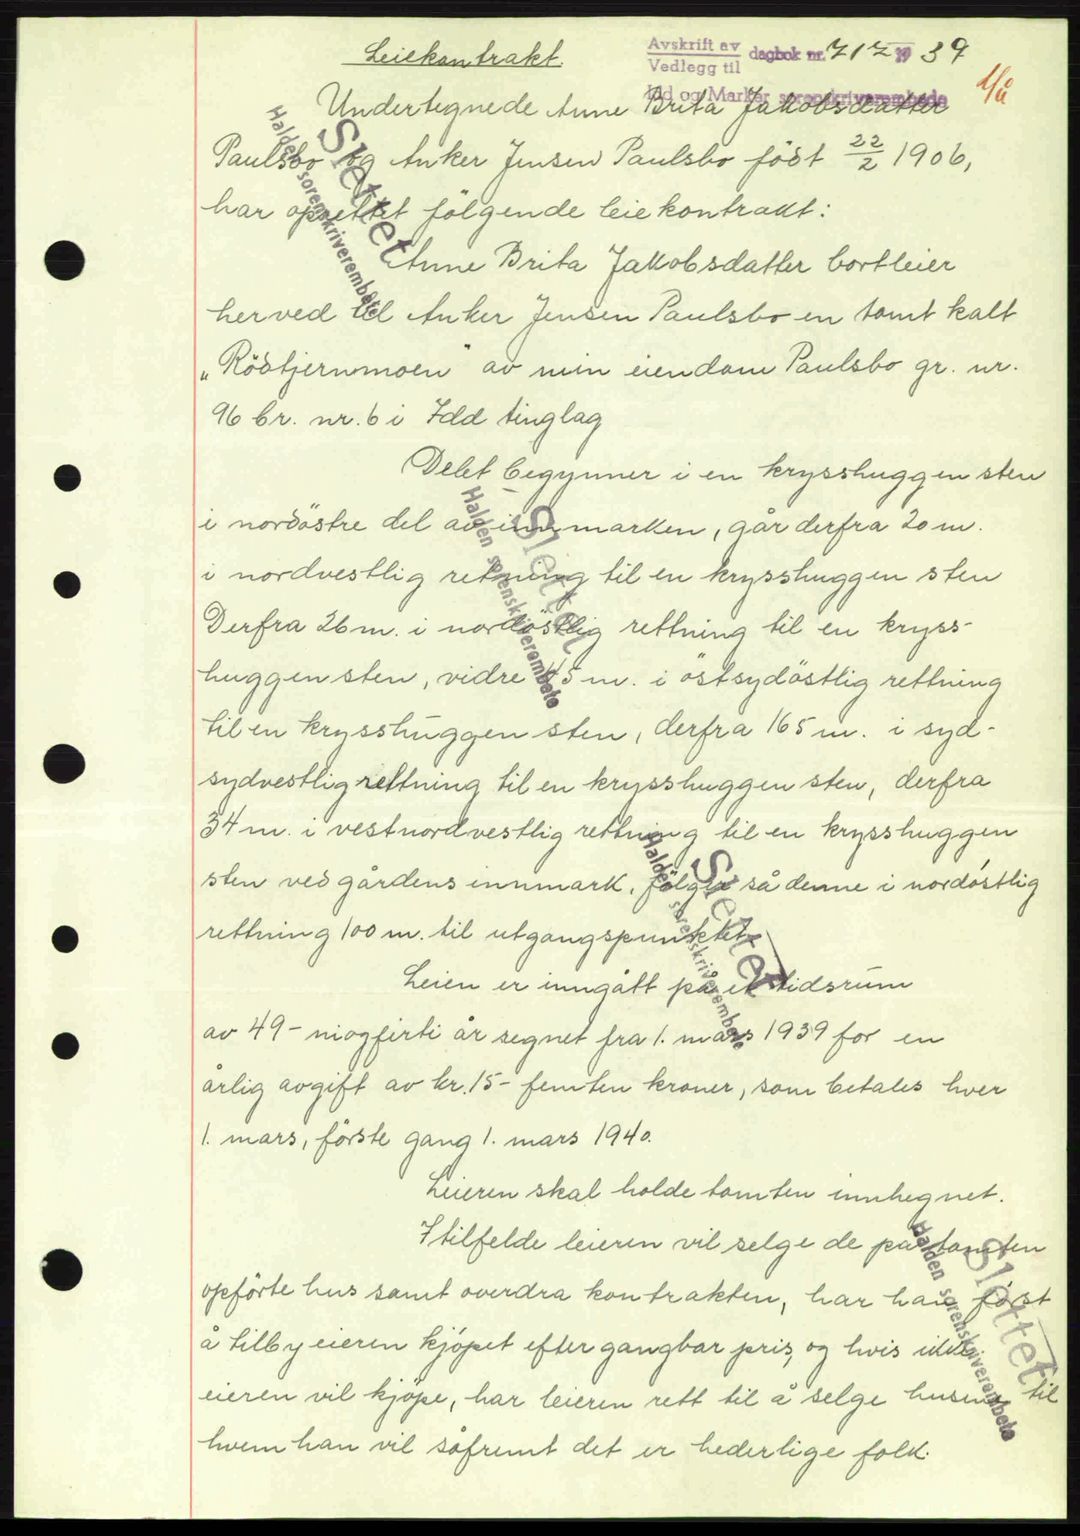 Leiekontrakt.
Avskrift av
Vedlegg til
dagbok nr. 717 1939
Idd og Marker sorenskriverembede
Undertegnede Anne Brita Jakobsdatter
Paulsbo og Anker Jensen Paulsbo föst 22/2 1906,
har oprettet fölgende leiekontrakt:
Anne Brita Jakobsdatter bortleier
herved til Anker Jensen Paulsbo en tomt kalt
„Röstjernmoen" av min eiendom Paulsbo gr. nr.
96 br. nr. 6 i Idd tinglag
Delet begynner i en krysshuggen sten
i nordöstre del av innmarken, går derfra 20 m.
i nordvestlig retning til en krysshuggen sten
Derfra 26 m. i nordöstlig rettning til en kryss-
huggen sten, vidre 45 m. i östsydöstlig rettning
til en krysshuggen sten, derfra 165 m. i syd-
sydvestlig rettning til en krysshuggen sten, derfra
34 m. i vestnordvestlig rettning til en krysshuggen
sten ved gårdens innmark, fölger så denne i nordöstlig
rettning 100 m. til utgangspunktet.
Leien er inngått på et tidsrum
av 49 – niogfirti år regnet fra 1. mars 1939 for en
årlig avgift av kr. 15 – femten kroner, som betales hver
1. mars, förste gang 1. mars 1940.
Leieren skal holde tomten innhegnet.
I tilfelde leieren vil selge de på tomten
opförte hus samt overdra kontrakten, har han först
å tilby eieren kjöpet efter gangbar pris, og hvis ikke
eieren vil kjöpe, har leieren rett til å selge husene til
hvem han vil såfremt det er hederlige folk.
Slettet
Halden sorenskriverembete
Slettet
Halden sorenskriverembete
Slettet
Halden sorenskriverembete
Slettet
Halden sorenskriverembete